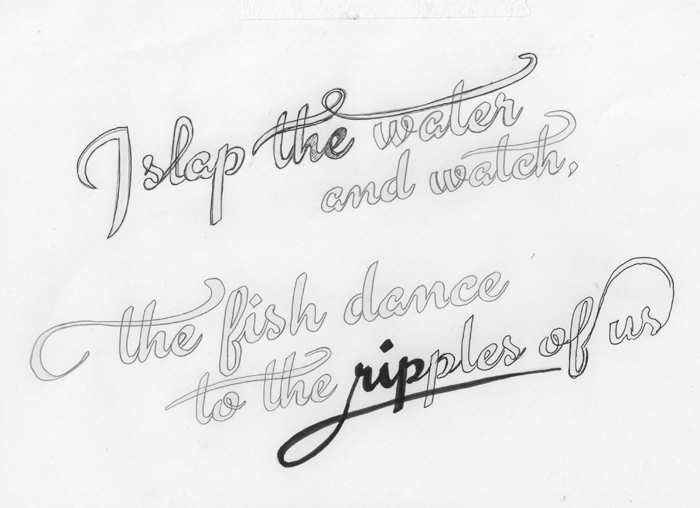 I slap the water
and watch,
the fish dance
to the ripples of us